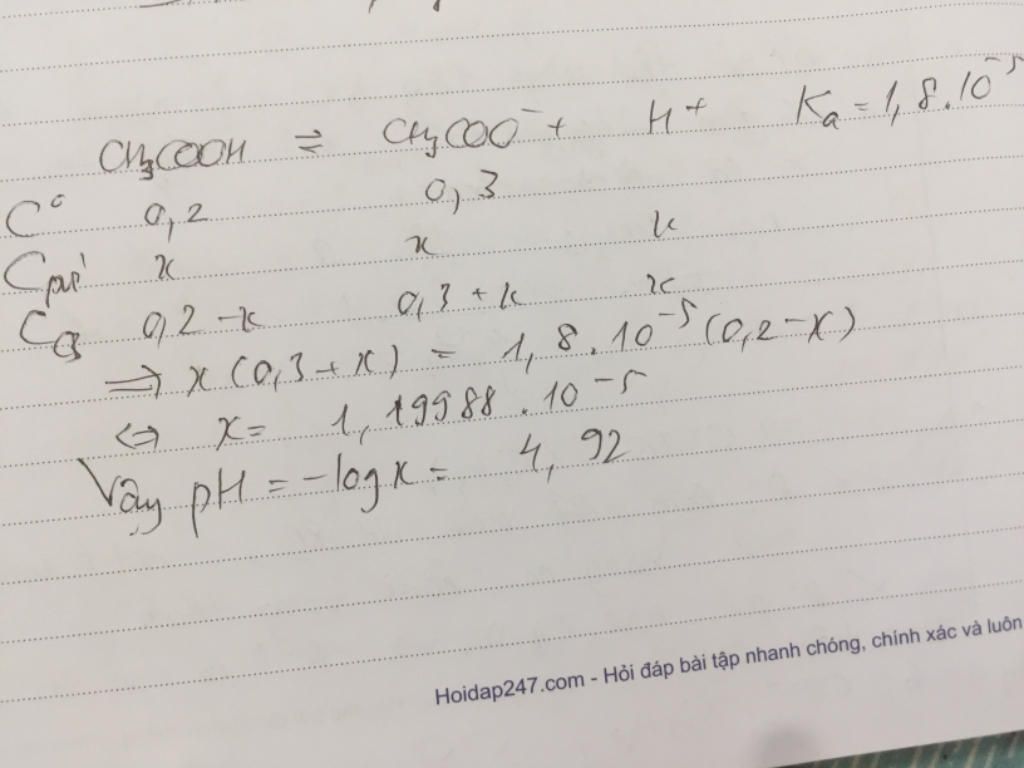 CH₃COOH ⇌ CH₃COO⁻ + H⁺ Ka = 1,8.10⁻⁵
C° 0,2 0,3
Cpứ x x x
C 0,2-x 0,3+x x
⇒ x(0,3+x) = 1,8.10⁻⁵(0,2-x)
⇔ x= 1,19988.10⁻⁵
Vậy pH = -logx = 4,92
Hoidap247.com - Hỏi đáp bài tập nhanh chóng, chính xác và luôn